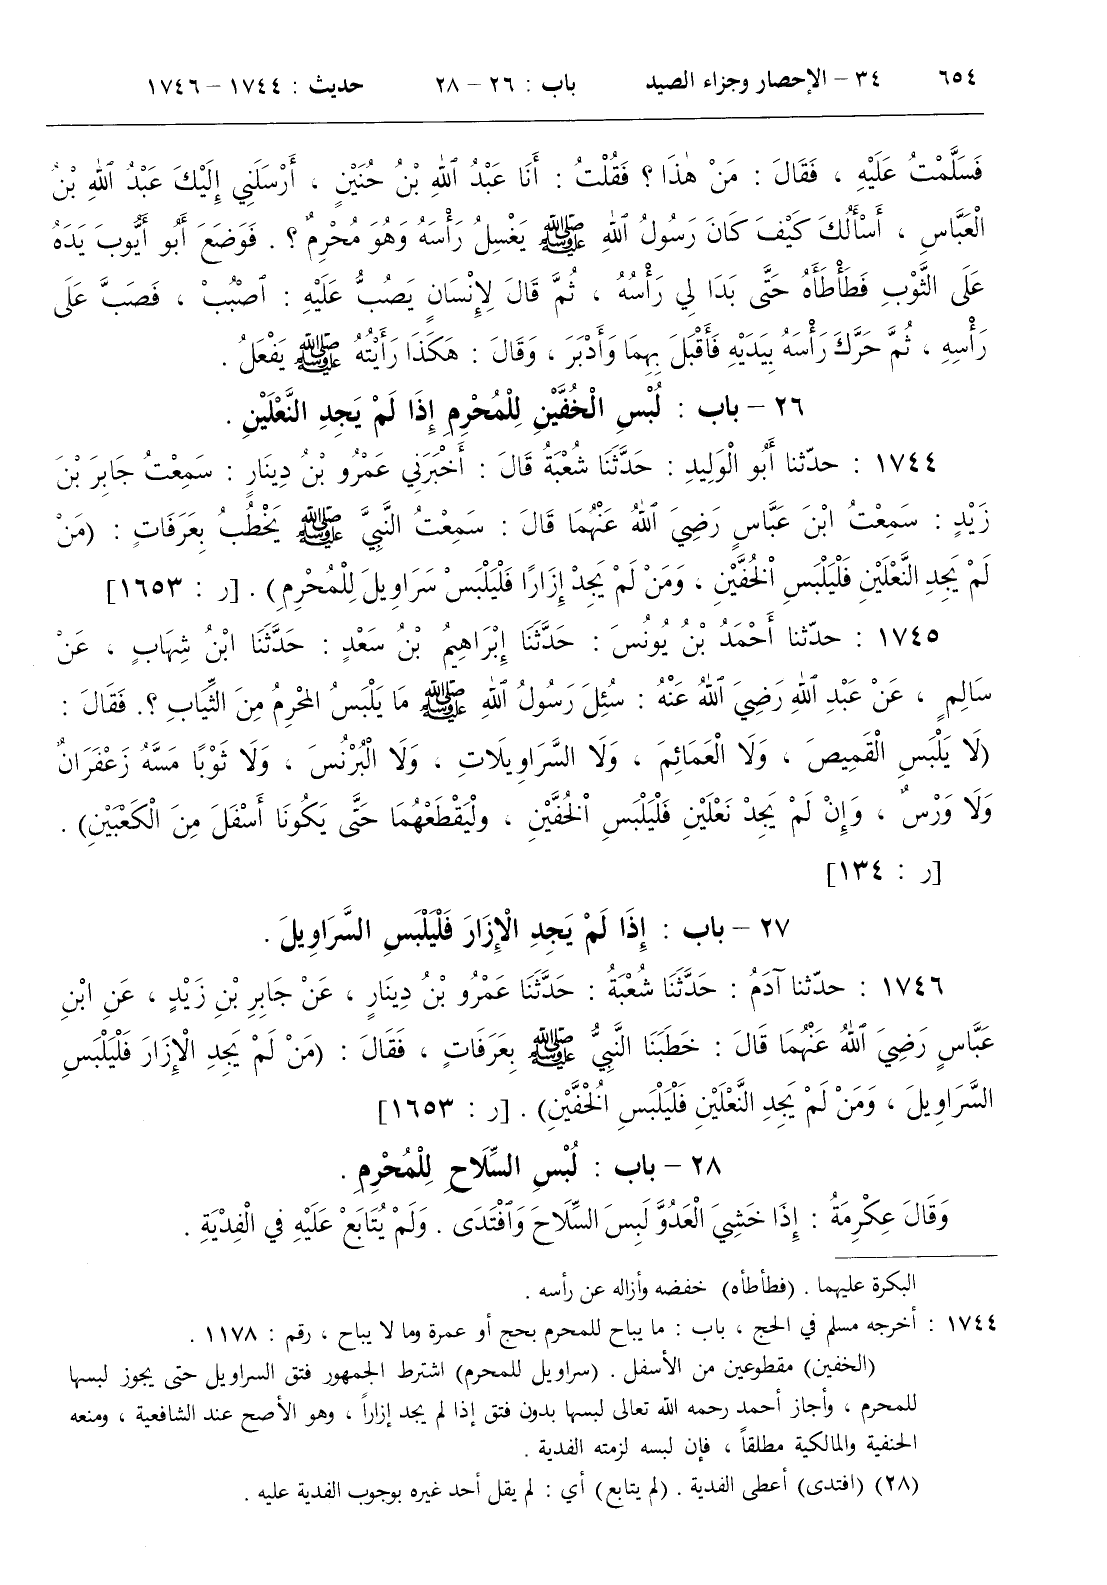 ٦٥٤ ٣٤ – الإحصار وجزاء الصيد باب : ٢٦ – ٢٨ حديث : ١٧٤٤ – ١٧٤٦
فَسَلَّمْتُ عَلَيْهِ ، فَقَالَ : مَنْ هٰذَا ؟ فَقُلْتُ : أَنَا عَبْدُ ٱللهِ بْنُ حُنَيْنٍ ، أَرْسَلَنِي إِلَيْكَ عَبْدُ ٱللهِ بْنُ
الْعَبَّاسِ ، أَسْأَلُكَ كَيْفَ كَانَ رَسُولُ ٱللهِ ﷺ يَغْسِلُ رَأْسَهُ وَهُوَ مُحْرِمٌ ؟ . فَوَضَعَ أَبُو أَيُّوبَ يَدَهُ
عَلَى الثَّوْبِ فَطَأْطَأَهُ حَتَّى بَدَا لِي رَأْسُهُ ، ثُمَّ قَالَ لِإِنْسَانٍ يَصُبُّ عَلَيْهِ : ٱصْبُبْ ، فَصَبَّ عَلَى
رَأْسِهِ ، ثُمَّ حَرَّكَ رَأْسَهُ بِيَدَيْهِ فَأَقْبَلَ بِهِمَا وَأَدْبَرَ ، وَقَالَ : هَكَذَا رَأَيْتُهُ ﷺ يَفْعَلُ .
٢٦ – باب : لُبْسِ الْخُفَّيْنِ لِلْمُحْرِمِ إِذَا لَمْ يَجِدِ النَّعْلَيْنِ .
١٧٤٤ : حدّثنا أَبُو الْوَلِيدِ : حَدَّثَنَا شُعْبَةُ قَالَ : أَخْبَرَنِي عَمْرُو بْنُ دِينَارٍ : سَمِعْتُ جَابِرَ بْنَ
زَيْدٍ : سَمِعْتُ ابْنَ عَبَّاسٍ رَضِيَ ٱللهُ عَنْهُمَا قَالَ : سَمِعْتُ النَّبِيَّ ﷺ يَخْطُبُ بِعَرَفَاتٍ : (مَنْ
لَمْ يَجِدِ النَّعْلَيْنِ فَلْيَلْبَسِ الْخُفَّيْنِ ، وَمَنْ لَمْ يَجِدْ إِزَارًا فَلْيَلْبَسْ سَرَاوِيلَ لِلْمُحْرِمِ) . [ر : ١٦٥٣]
١٧٤٥ : حدّثنا أَحْمَدُ بْنُ يُونُسَ : حَدَّثَنَا إِبْرَاهِيمُ بْنُ سَعْدٍ : حَدَّثَنَا ابْنُ شِهَابٍ ، عَنْ
سَالِمٍ ، عَنْ عَبْدِ ٱللهِ رَضِيَ ٱللهُ عَنْهُ : سُئِلَ رَسُولُ ٱللهِ ﷺ مَا يَلْبَسُ المُحْرِمُ مِنَ الثِّيَابِ ؟. فَقَالَ :
(لَا يَلْبَسِ الْقَمِيصَ ، وَلَا الْعَمَائِمَ ، وَلَا السَّرَاوِيلَاتِ ، وَلَا الْبُرْنُسَ ، وَلَا ثَوْبًا مَسَّهُ زَعْفَرَانٌ
وَلَا وَرْسٌ ، وَإِنْ لَمْ يَجِدْ نَعْلَيْنِ فَلْيَلْبَسِ الْخُفَّيْنِ ، ولْيَقْطَعْهُمَا حَتَّى يَكُونَا أَسْفَلَ مِنَ الْكَعْبَيْنِ) .
[ر : ١٣٤]
٢٧ – باب : إِذَا لَمْ يَجِدِ الْإِزَارَ فَلْيَلْبَسِ السَّرَاوِيلَ .
١٧٤٦ : حدّثنا آدَمُ : حَدَّثَنَا شُعْبَةُ : حَدَّثَنَا عَمْرُو بْنُ دِينَارٍ ، عَنْ جَابِرِ بْنِ زَيْدٍ ، عَنِ ابْنِ
عَبَّاسٍ رَضِيَ ٱللهُ عَنْهُمَا قَالَ : خَطَبَنَا النَّبِيُّ ﷺ بِعَرَفَاتٍ ، فَقَالَ : (مَنْ لَمْ يَجِدِ الْإِزَارَ فَلْيَلْبَسِ
السَّرَاوِيلَ ، وَمَنْ لَمْ يَجِدِ النَّعْلَيْنِ فَلْيَلْبَسِ الْخُفَّيْنِ) . [ر : ١٦٥٣]
٢٨ – باب : لُبْسِ السِّلَاحِ لِلْمُحْرِمِ .
وَقَالَ عِكْرِمَةُ : إِذَا خَشِيَ الْعَدُوَّ لَبِسَ السِّلَاحَ وَٱفْتَدَى . وَلَمْ يُتَابَعْ عَلَيْهِ فِي الْفِدْيَةِ .
البكرة عليهما . (فطأطأه) خفضه وأزاله عن رأسه .
١٧٤٤ : أخرجه مسلم في الحج ، باب : ما يباح للمحرم بحج أو عمرة وما لا يباح ، رقم : ١١٧٨ .
(الخفين) مقطوعين من الأسفل . (سراويل للمحرم) اشترط الجمهور فتق السراويل حتى يجوز لبسها
للمحرم ، وأجاز أحمد رحمه الله تعالى لبسها بدون فتق إذا لم يجد إزاراً ، وهو الأصح عند الشافعية ، ومنعه
الحنفية والمالكية مطلقاً ، فإن لبسه لزمته الفدية .
(٢٨) (افتدى) أعطى الفدية . (لم يتابع) أي : لم يقل أحد غيره بوجوب الفدية عليه .